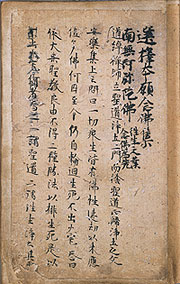 選擇本願念佛集
南無阿弥陀佛 往生之業
念佛為先
道綽禪師立聖道淨土二門而捨聖道正歸淨土之文
安樂集上云問曰一切衆生皆有佛性遠劫以来應
値多仏何因至今仍自輪廻生死不出火宅答曰
依大乘聖教良由不得二種勝法以排生死是以
不出火宅何者為二一謂聖道二謂往生淨土